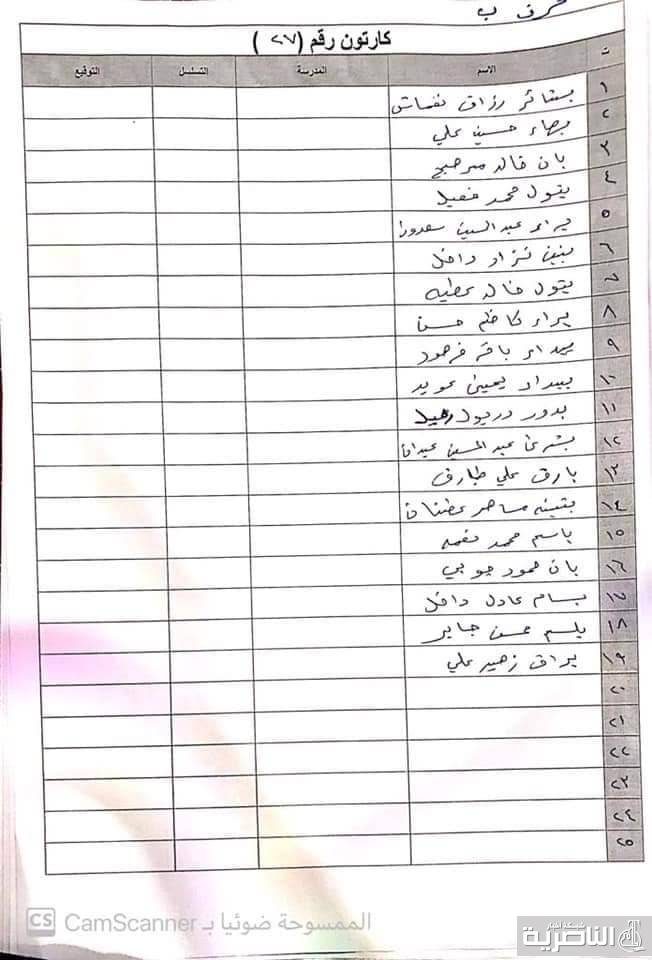 حرف ب
كارتون رقم (٢٧)
ت الاسم المدرسة التسلسل التوقيع
١ بشائر رزاق نغماش
٢ بهاء حسين علي
٣ بان خالد
٤ بتول محمد فيصل
٥ عبد الحسين
٦ بنين نزاد داخل
٧ بتول خالد عطيه
٨ براء كاظم حسن
٩ باقر فرهود
١٠ بيداء
١١ بدور
١٢ بشرى عبد الحسين عيدان
١٣ بارق علي طارق
١٤ بثينه
١٥ باسم محمد نعمه
١٦ بان حمود
١٧ بسام عادل داخل
١٨ بلسم محسن جابر
١٩ براق زهير علي
٢٠
٢١
٢٢
٢٣
٢٤
٢٥
CS الممسوحة ضوئيا بـ CamScanner
شبكة اخبار الناصرية